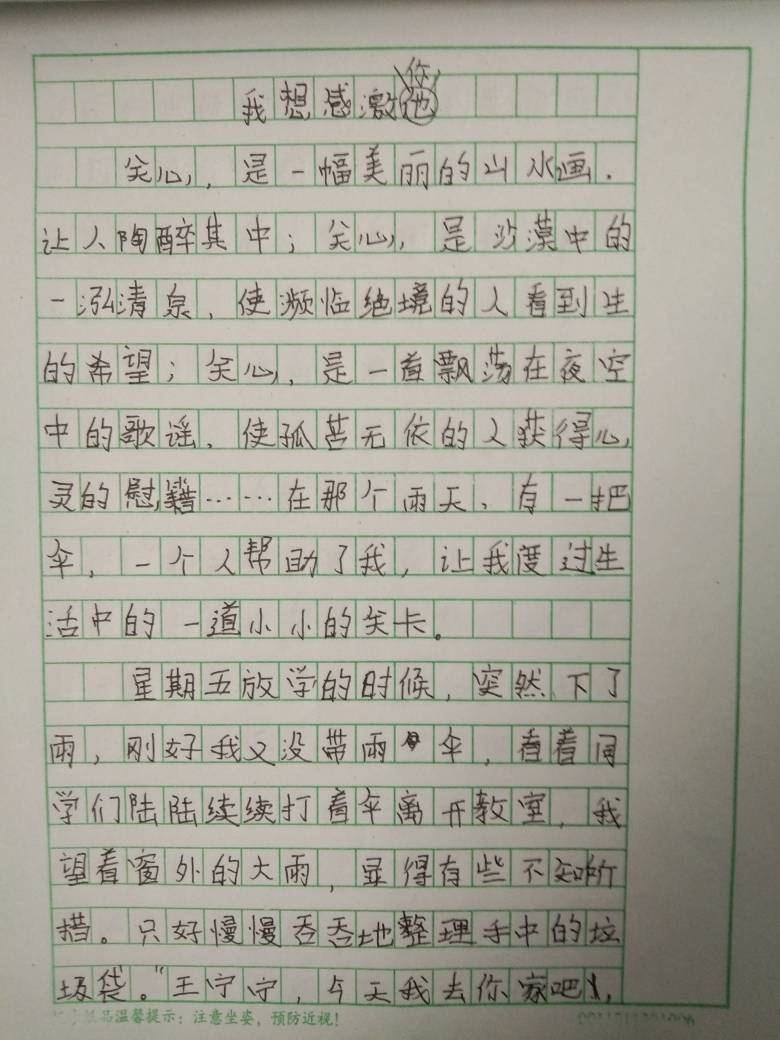 你
我想感激他
关心，是一幅美丽的山水画，
让人陶醉其中；关心，是沙漠中的
一泓清泉，使濒临绝境的人看到生
的希望；关心，是一首飘荡在夜空
中的歌谣，使孤苦无依的人获得心
灵的慰藉……在那个雨天，有一把
伞，一个人帮助了我，让我度过生
活中的一道小小的关卡。
星期五放学的时候，突然下了
雨，刚好我又没带雨伞，看着同
学们陆陆续续打着伞离开教室，我
望着窗外的大雨，显得有些不知所
措。只好慢慢吞吞地整理手中的垃
圾袋。"王宁宁，今天我去你家吧！，
品温馨提示：注意坐姿，预防近视！